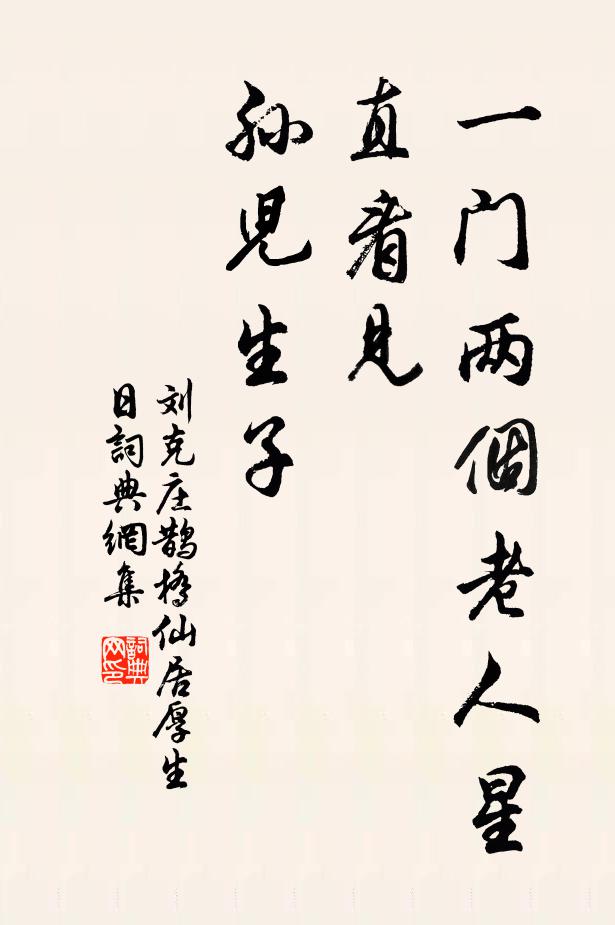 一门两個老人星
直看見
孙児生子
刘克庄鹊橋仙居厚生
日詞典網集
詞典
网印